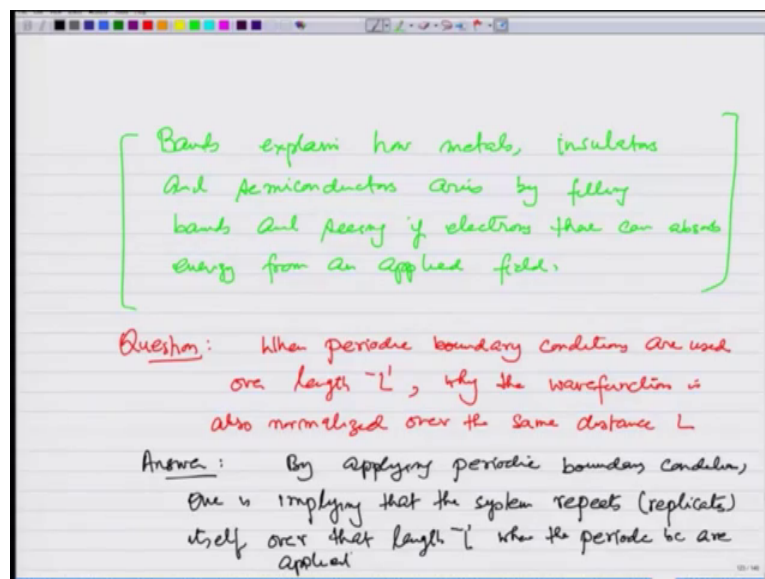 Bands explain how metals, insulators
and semiconductors aris by filling
bands and seeing if electrons there can absorb
energy from an applied field.
Question: When periodic boundary conditions are used
over length 'L', why the wavefunction is
also normalized over the same distance L
Answer: By applying periodic boundary condition,
one is implying that the system repeats (replicats)
itself over that length 'L' when the periodic bc are
applied